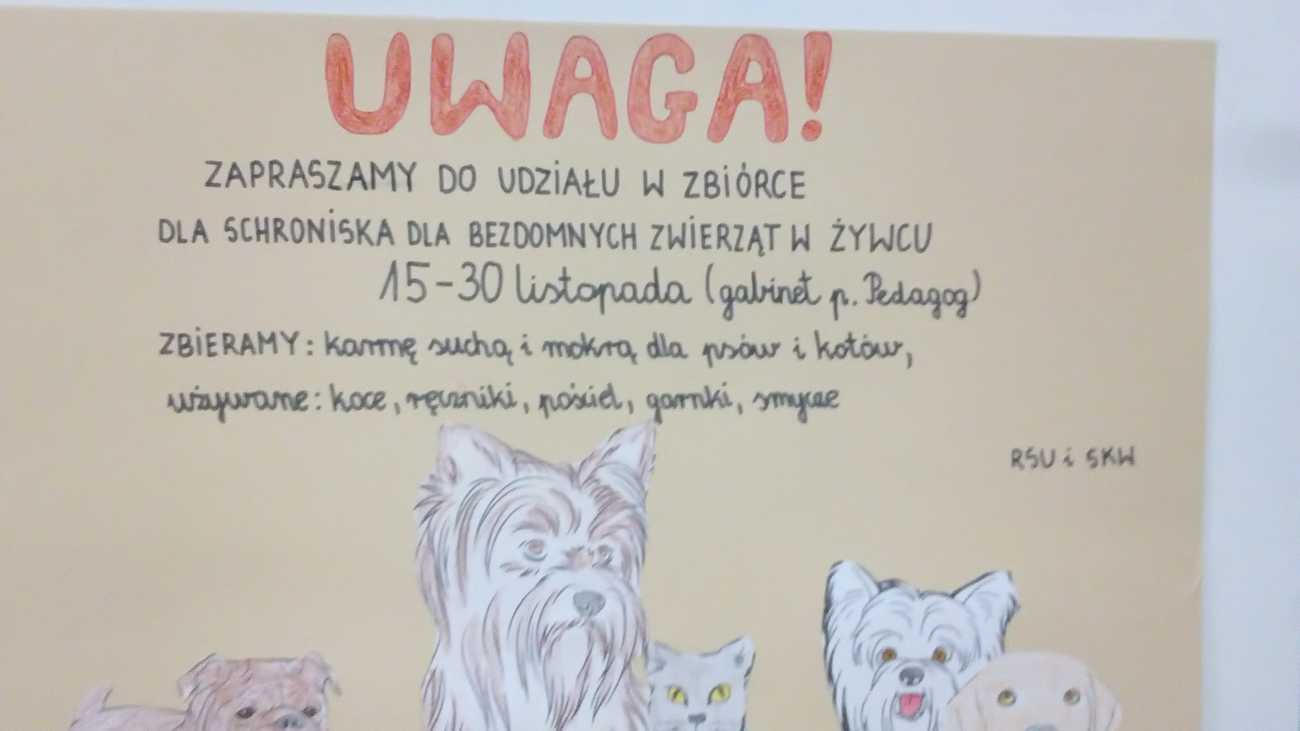 UWAGA!
ZAPRASZAMY DO UDZIAŁU W ZBIÓRCE
DLA SCHRONISKA DLA BEZDOMNYCH ZWIERZĄT W ŻYWCU
15-30 listopada (gabinet p. Pedagog)
ZBIERAMY: karmę suchą i mokrą dla psów i kotów,
używane: koce, ręczniki, pościel, garnki, smycze
RSU i SKW